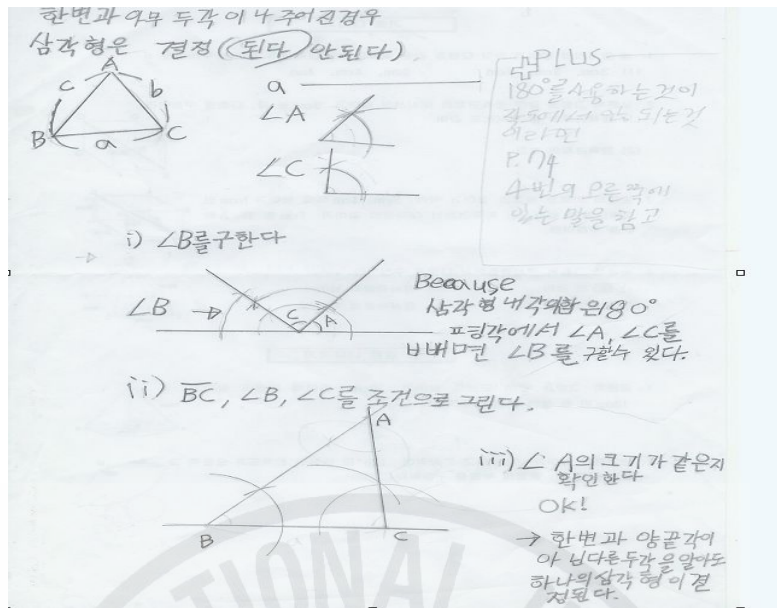 한변과 아무 두각이 나 주어진경우
삼각형은 결정(된다 안된다).
A
c b
B a C
a
∠A
∠C
PLUS
180°를 사용하는것이
각도에서 안 되는것
이라면
P.74
4번의 오른쪽에
있는 말을 참고
i) ∠B를구한다
∠B →
C A
Because
삼각형 내각의합은180°
평각에서 ∠A, ∠C를
빼면 ∠B를 구할수 있다.
ii) BC, ∠B, ∠C를 조건으로 그린다.
A
B C
iii) ∠A의크기가 같은지
확인한다
OK!
→ 한변과 양끝각이
아닌다른두각을알아도
하나의삼각형이결
정된다.
TIONAL